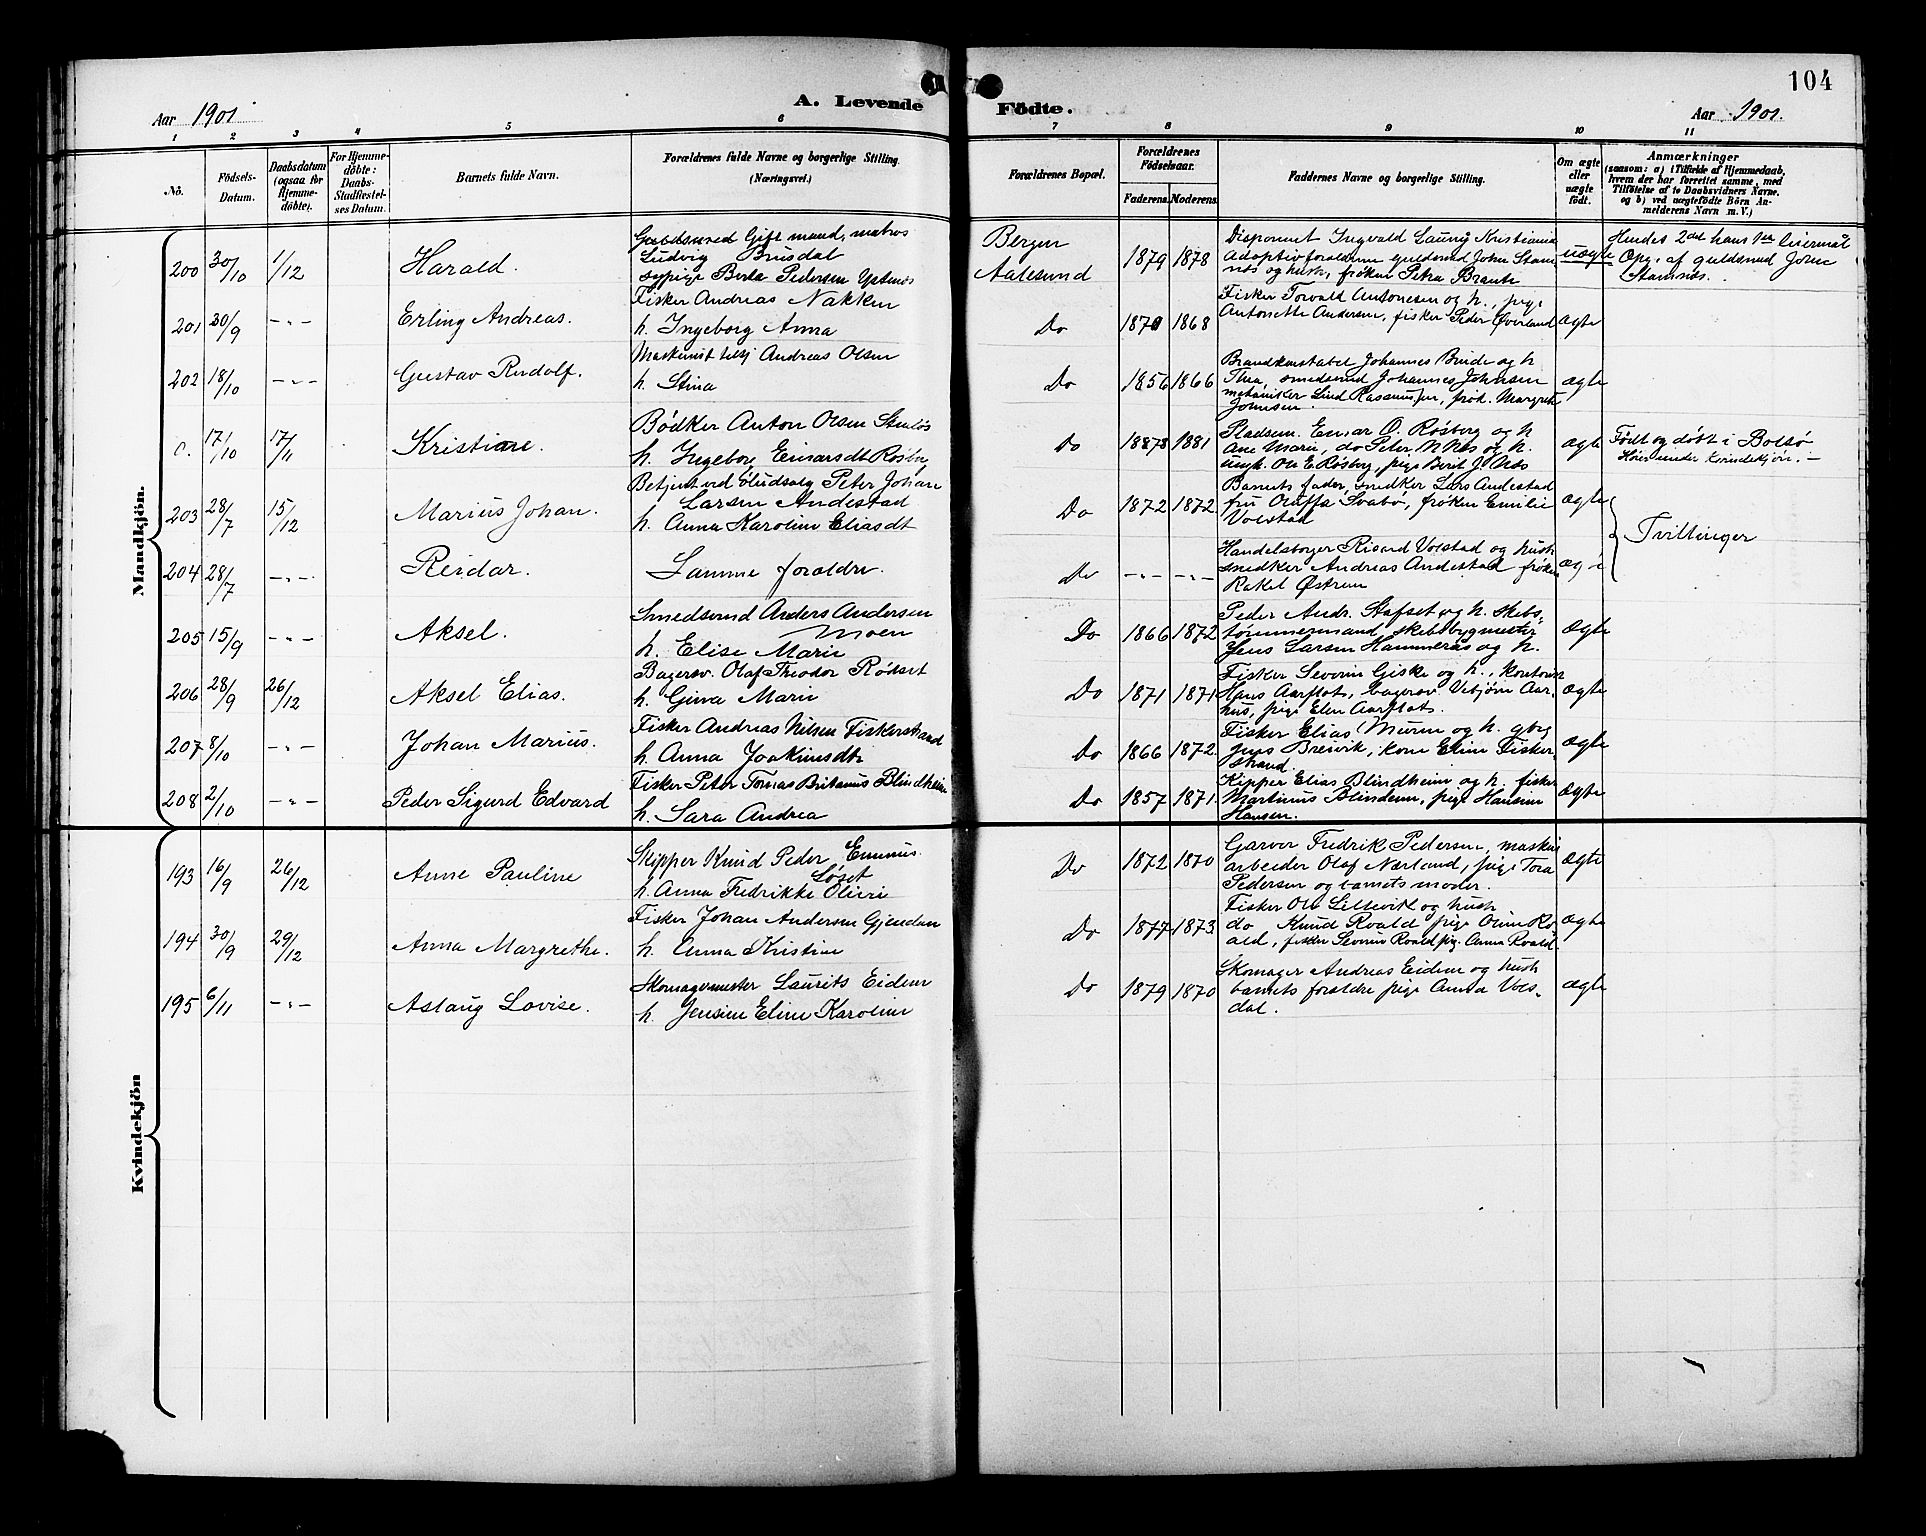 104
Aar 1901
A. Levende Födte.
Aar 1901.
1 2 3 4 5 6 7 8 9 10 11
No.
Födsels-Datum.
Daabsdatum (ogsaa for Hjemme-döbte).
For Hjemme-döbte: Daabs-Stadfæstel-ses Datum.
Barnets fulde Navn.
Forældrenes fulde Navne og borgerlige Stilling.
(Næringsvei.)
Forældrenes Bopæl.
Forældrenes Födselsaar.
Faderens. Moderens.
Faddernes Navne og borgerlige Stilling.
Om ægte eller uægte födt.
Anmærkninger
(saasom: a) i Tilfælde af Hjemmedaab, hvem der har forrettet samme, med Tilföielse af to Daabsvidners Navne, og b) ved uægtefödte Börn An-melderens Navn m. V.)
Mandkjön.
200 30/10 1/12 Harald.
Gift mand, matros
Ludvig Brusdal
sypige Berta Pedersen
Bergen
Aalesund
1879 1878
Disponent Ingvald Kristiania
Adoptivforældrene guldsmed John Stam-
nes og hust, frøken Petra
uægte
Hendes 2det hans 1ste leiermål
Opg. af guldsmed John
Stamnes.
201 30/9 -"- Erling Andreas.
Fisker Andreas Nakken
h. Ingeborg Anna
Do 1870 1868
Fisker Torvald Antonesen og h., pige
Antonette Andersen, fisker Peder Øverland
ægte
202 18/10 -"- Gustav Rudolf.
Maskinist Andreas Olsen
h. Stina
Do 1856 1866
Brandkonstabel Johannes Brude og h
Thea, smedsvend Johannes Johnsen
mekaniker Lind Rasmussen, frøk. Margrete
Johnsen.
ægte
c. 17/10 17/11 Kristiane.
Bødker Anton Olsen Stenløs
h. Ingeborg Einarsdt Røsberg
Do 1878 1881
Pladsem. Einar O. Røsberg og h
Ane Marie, do Peter N Nes og h.
ungk. Ole E Røsberg, pige Berit J. Nes
ægte
Født og døbt i Bolsø
Hører under kvindekjøn. -
203 28/7 15/12 Marius Johan.
Betjent ved Øludsalg Peter Johan
Larsen Andestad
h. Anna Karoline Eliasdt
Do 1872 1872
Barnets fader, snedker Lars Andestad
fru Oluffa Svabø, frøken Emilie
Volstad
ægte
Tvillinger
204 28/7 -"- Reidar.
Samme forældre.
Do -"- -"-
Handelsborger Rikard Volstad og hust
snedker Andreas Andestad frøken
Rakel Østrem
205 15/9 -"- Aksel.
Smedsvend Anders Andersen
Moen
h. Elise Marie
Do 1866 1872
Peder Andr. Stafset og h. skibs-
tømmermand, skibsbygmester
Jens Larsen Hammerås og h.
Ægte
206 28/9 26/12 Aksel Elias.
Bagersv. Olaf Theodor Rødset
h. Gina Marie
Do 1871 1871
Fisker Severin Giske og h., kontorist
Hans Aarflot, bagersv. Vebjørn Aar-
hus, pige Elen Aarflot.
Ægte
207 8/10 -"- Johan Marius.
Fisker Andreas Nilsen Fiskerstrand
h. Anna Joakimsdt
Do 1866 1872.
Fisker Elias Muren og h. gbrg
Jens Breivik, kone Eline Fisker-
strand.
Ægte
208 2/10 -"- Peder Sigurd Edvard
Fisker Peter Tomas Britanus Blindheim
h. Sara Andrea
Do 1857 1871.
Skipper Elias Blindheim og h. fisker
Martinus Blindheim, pige Hansine
Hansen.
Ægte
Kvindekjön
193 16/9 26/12 Anne Pauline
Skipper Knud Peder Emmus
Løset
h. Anna Fredrikke Olivie
Do 1872 1870
Garver Fredrik Pedersen, maskin
arbeider Olaf Nærland, pige Tora
Pedersen og barnets moder.
Ægte
194 30/9 29/12 Anna Margrethe.
Fisker Johan Andersen Gjendem
h. Anna Kristine
Do 1877 1873
Fisker Ole Lillevik og hust
do Knud Roald pige Oline Ro-
ald, fisker Severin Roald pig. Anna Roald.
ægte
195 6/11 -"- Aslaug Lovise.
Skomagermester Laurits Eidem
h. Jensine Eline Karoline
Do 1879 1870
Skomager Andreas Eidem og hust
barnets forældre pige Anna Vols-
dal.
ægte